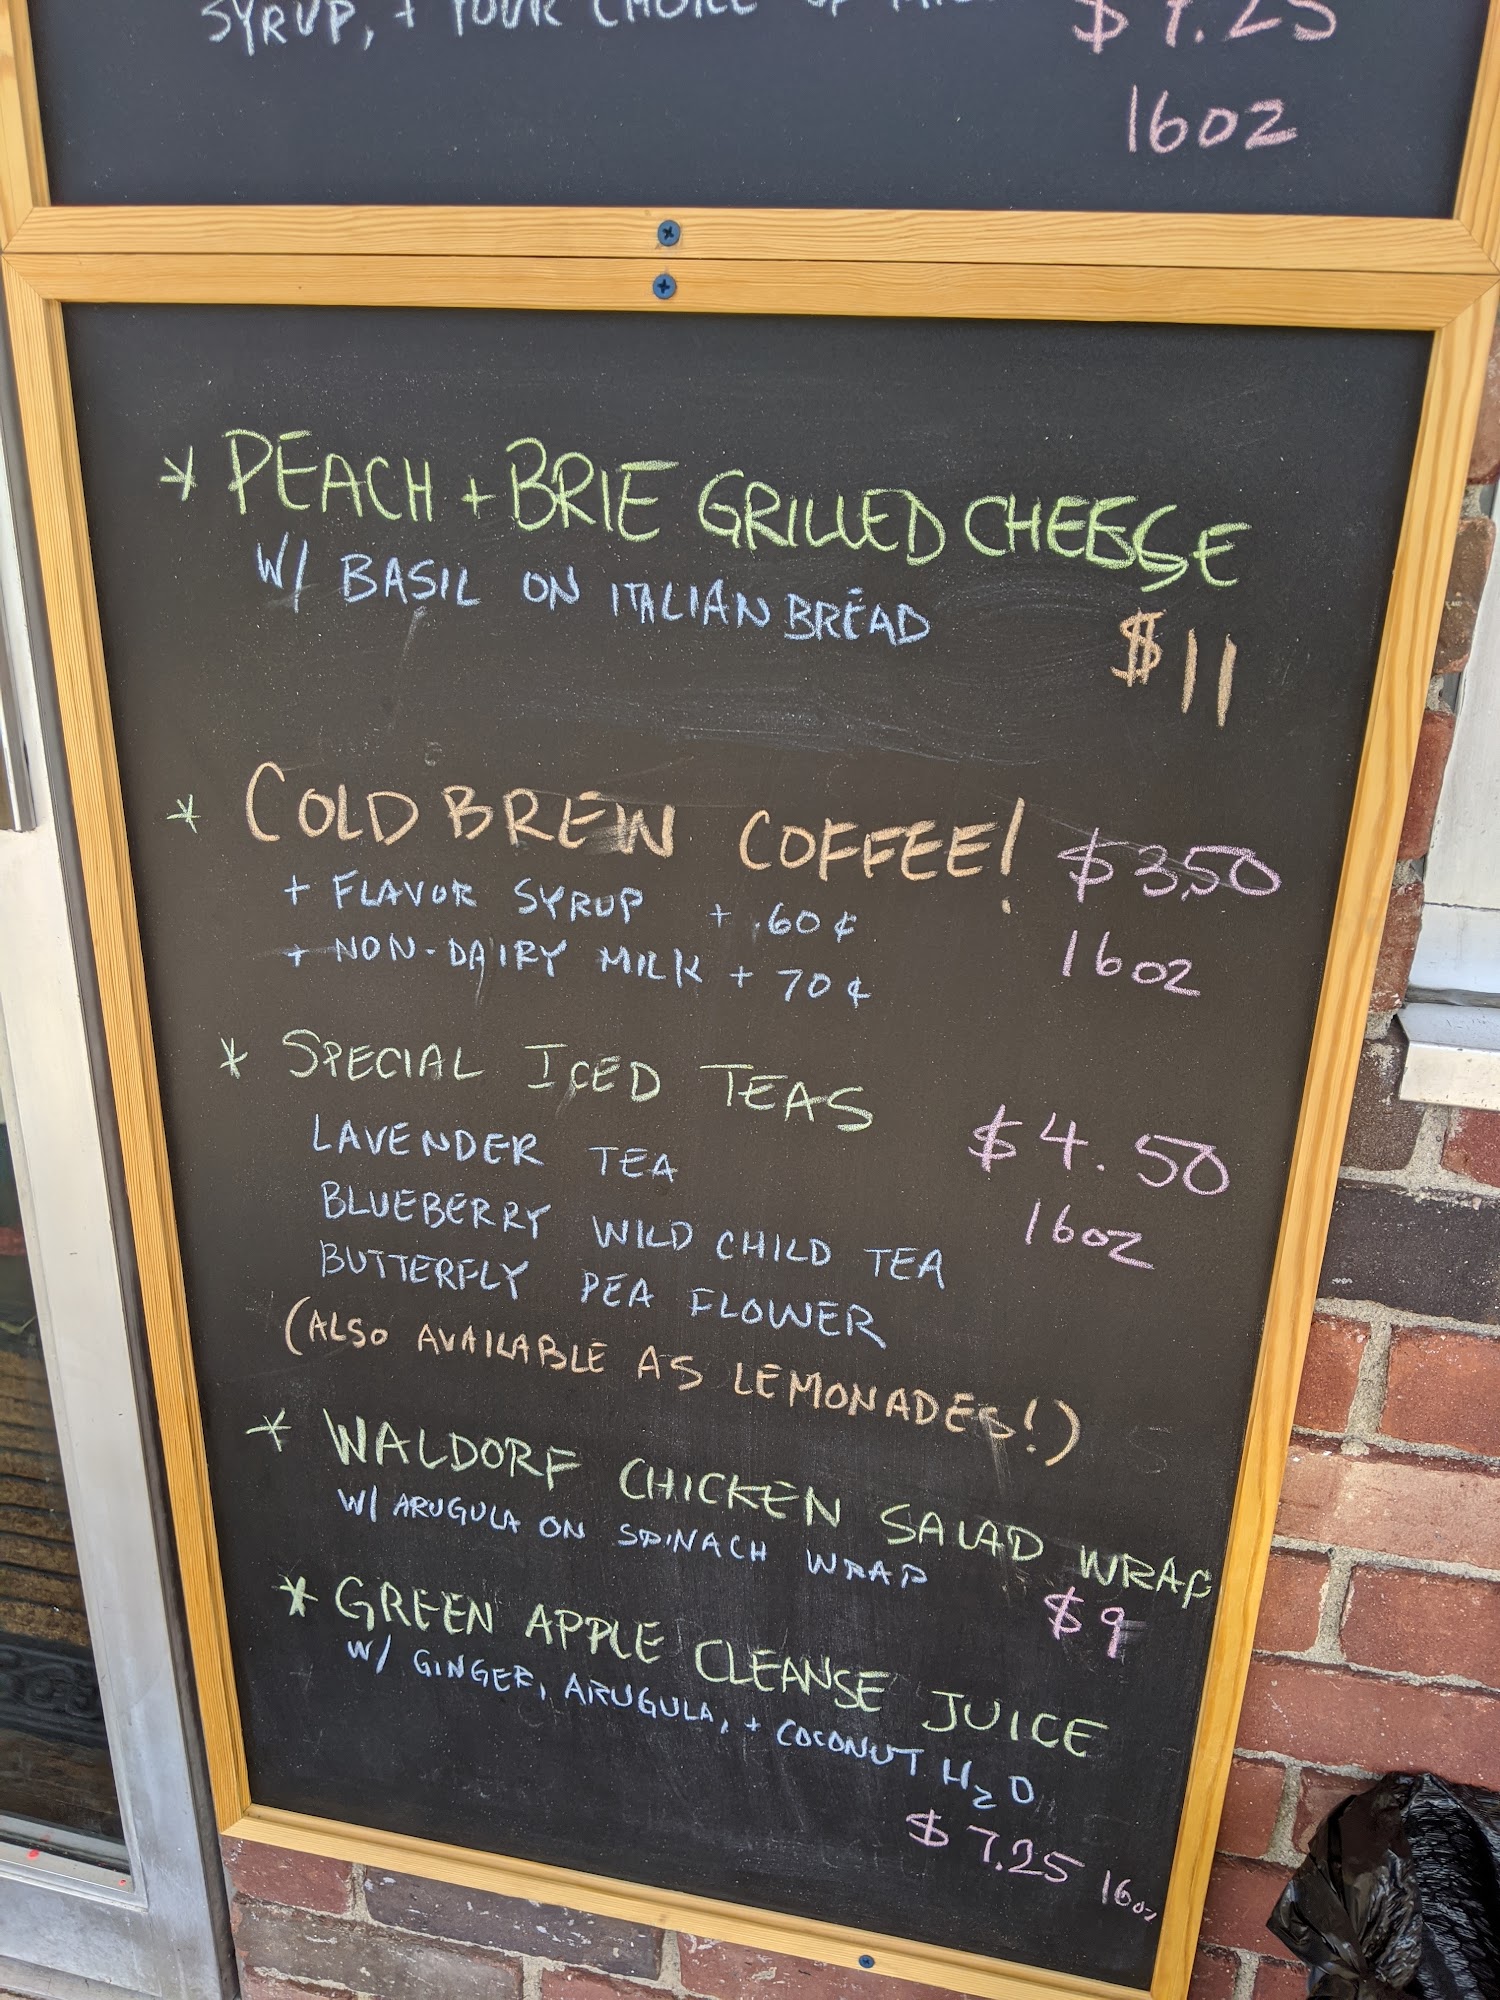 SYRUP, + YOUR CHOICE OF
$9.25
16oz
* PEACH + BRIE GRILLED CHEESE
W/ BASIL ON ITALIAN BREAD
$11
* COLD BREW COFFEE! $3.50
+ FLAVOR SYRUP + .60¢
16oz
+ NON-DAIRY MILK + 70¢
* SPECIAL ICED TEAS
$4.50
LAVENDER TEA
16oz
BLUEBERRY WILD CHILD TEA
BUTTERFLY PEA FLOWER
(ALSO AVAILABLE AS LEMONADES!)
* WALDORF CHICKEN SALAD WRAP
W/ ARUGULA ON SPINACH WRAP
$9
* GREEN APPLE CLEANSE JUICE
W/ GINGER, ARUGULA, + COCONUT H2O
$7.25 16oz